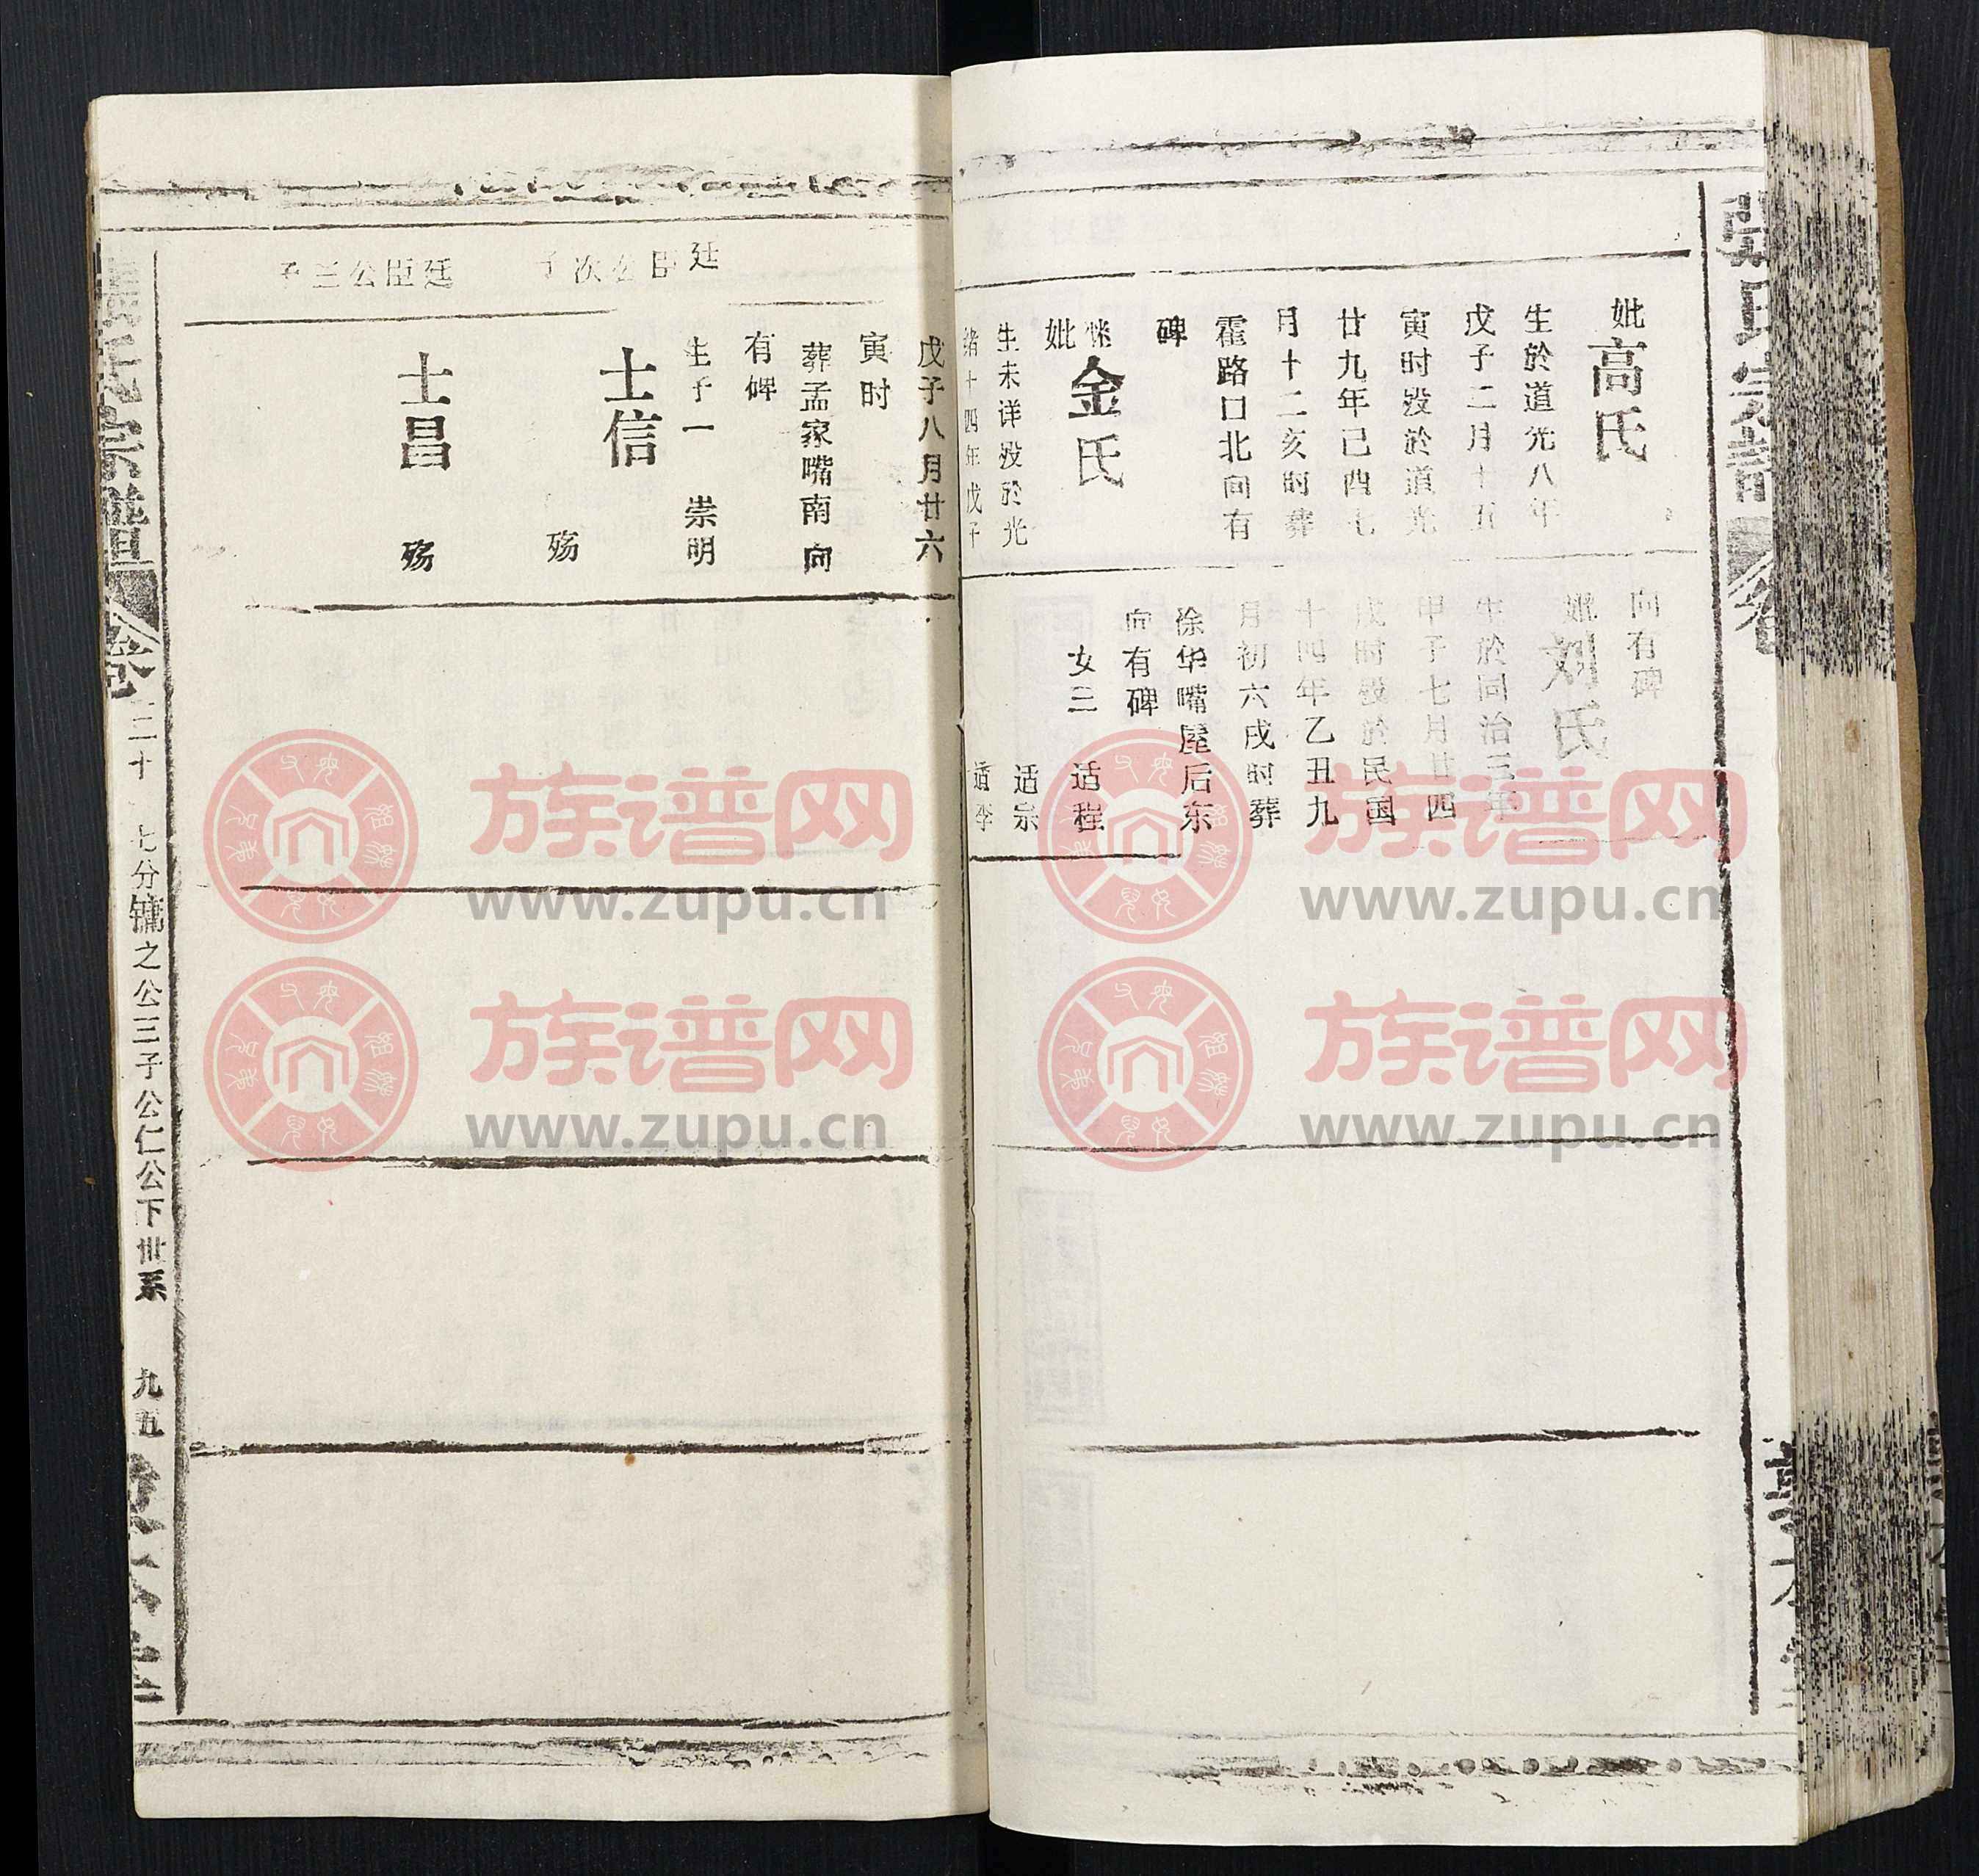 妣高氏
生於道光八年
戊子二月十五
寅时殁於道光
廿九年己酉七
月十二亥时葬
霍路口北向有
碑
继妣金氏
生未详殁於光
绪十四年戊子
向有碑
妣刘氏
生於同治三年
甲子七月廿四
戌时殁於民国
十四年乙丑九
月初六戌时葬
徐华嘴屋后东
向有碑
女三 适程
适宗
适李
戊子八月廿六
寅时
葬孟家嘴南向
有碑
生子一 崇明
廷臣公次子
士信 殇
廷臣公三子
士昌 殇
張氏宗譜 卷三十 七分镛之公三子公仁公下世系 九五
族谱网
www.zupu.cn
族谱网
www.zupu.cn
族谱网
www.zupu.cn
族谱网
www.zupu.cn